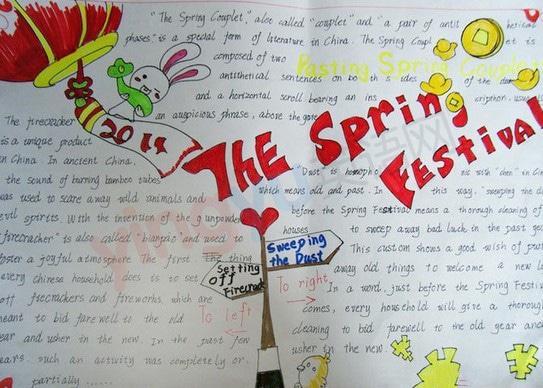 "The Spring Couplet," also called "couplet" and "a pair of antit hetical
phases" is a special form of literature in China. The Spring Coupl et is
composed of two
Pasting Spring Couplets
antithetical sentences on both sides of the door
and a horizontal scroll bearing an ins cription, usually
an auspicious phrase, above the gate
2011
The Spring
Festival
The firecracker
is a unique product
in China. In ancient China,
the sound of burning bamboo tubes
was used to scare away wild animals and
evil spirits. With the invention of the gunpowder
"firecracker" is also called "bianpao" and used to
foster a joyful atmosphere. The first thing
every Chinese household does is to set
off firecrackers and fireworks, which are
meant to bid farewell to the old
year and usher in the new. In the past few
years, such an activity was completely or
partially ......
Setting
off
Firecrack
To left
Sweeping
the Dust
To right
"Dust" is homopho nic with "chen" in Chin
which means old and past. In this way, "sweeping the du
before the Spring Festival means a thorough cleaning of
houses to sweep away bad luck in the past yea
This custom shows a good wish of putt
away old things to welcome a new l
In a word, just before the Spring Festiva
comes, every household will give a thorough
cleaning to bid farewell to the old year and
usher in the new.